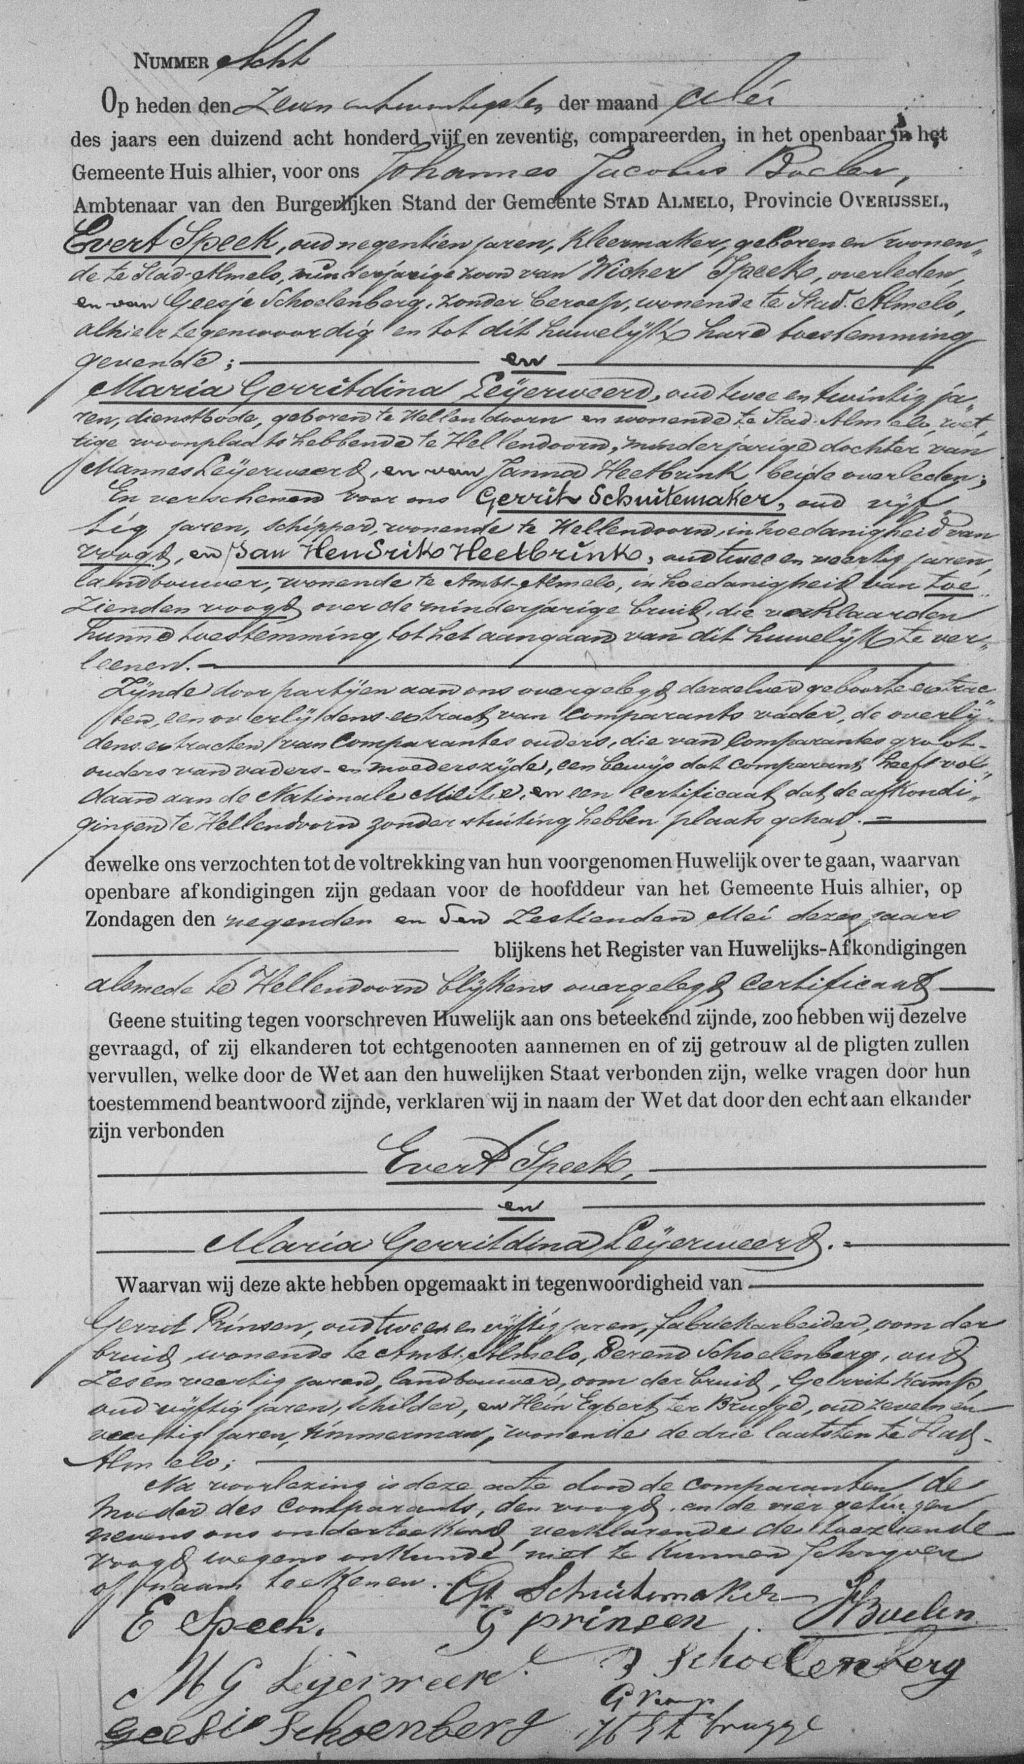 NUMMER Acht
Op heden den Zeven en twentigsten der maand Mei
des jaars een duizend acht honderd vijf en zeventig, compareerden, in het openbaar in het
Gemeente Huis alhier, voor ons Johannes Jacobus Boelen,
Ambtenaar van den Burgerlijken Stand der Gemeente STAD ALMELO, Provincie OVERIJSSEL,
Evert Speek, oud negentien jaren, kleermaker, geboren en wonen-
de te Stad-Almelo, minderjarige zoon van Wicher Speek, overleden,
en van Geesje Schoelenberg, zonder beroep, wonende te Stad-Almelo,
alhier tegenwoordig en tot dit huwelijk hare toestemming
gevende;
en
Maria Gerritdina Leijerweerd, oud twee en twintig ja-
ren, dienstbode, geboren te Hellendoorn en wonende te Stad-Almelo, wet-
tige woonplaats hebbende te Hellendoorn, minderjarige dochter van
Mannes Leijerweerd, en van Janna Heetbrink beide overleden;
En verschenen voor ons Gerrit Schuitemaker, oud vijf-
tig jaren, schipper, wonende te Hellendoorn, in hoedanigheid van
voogd, en Jan Hendrik Heetbrink, oud twee en veertig jaren,
landbouwer, wonende te Ambt-Almelo, in hoedanigheid van toe-
zienden voogd over de minderjarige bruid, die verklaarden
hunne toestemming tot het aangaan van dit huwelijk te ver-
leenen.
Zijnde door partijen aan ons overgelegd derzelver geboorte extrac-
ten, een overlijdens-extract van Comparants vader, de overlij-
dens-extracten van Comparantes ouders, die van Comparantes groot-
ouders van vaders- en moederszijde, een bewijs dat comparant heeft vol-
daan aan de Nationale Militie, en een certificaat dat de afkondi-
gingen te Hellendoorn zonder stuiting hebben plaats gehad.
dewelke ons verzochten tot de voltrekking van hun voorgenomen Huwelijk over te gaan, waarvan
openbare afkondigingen zijn gedaan voor de hoofddeur van het Gemeente Huis alhier, op
Zondagen den negenden en den Zestienden Mei dezes jaars
blijkens het Register van Huwelijks-Afkondigingen
alsmede te Hellendoorn blijkens overgelegd certificaat
Geene stuiting tegen voorschreven Huwelijk aan ons beteekend zijnde, zoo hebben wij dezelve
gevraagd, of zij elkanderen tot echtgenooten aannemen en of zij getrouw al de pligten zullen
vervullen, welke door de Wet aan den huwelijken Staat verbonden zijn, welke vragen door hun
toestemmend beantwoord zijnde, verklaren wij in naam der Wet dat door den echt aan elkander
zijn verbonden
Evert Speek,
en
Maria Gerritdina Leijerweerd.
Waarvan wij deze akte hebben opgemaakt in tegenwoordigheid van
Gerrit Prinsen, oud twee en vijftig jaren, fabriekarbeider, oom der
bruid, wonende te Ambt-Almelo, Berend Schoelenberg, oud
Zes en veertig jaren, landbouwer, oom der bruid, Gerrit Kamp,
oud vijftig jaren, schilder, en Hein Egbert ter Brugge, oud zeven en
veertig jaren, timmerman, wonende de drie laatsten te Stad-
Almelo;
Na voorlezing is deze acte door de comparanten de
moeder des Comparants, den voogd en de vier getuigen
nevens ons onderteekend, verklarende de toeziende
voogd wegens onkunde niet te kunnen schrijven
of naam teekenen.
Gt Schuitemaker
E Speek. G prinsen JJBoelen
M G Leijerweerd B Schoelenberg
G Kamp
Geesje Schoenberg H E ter brugge